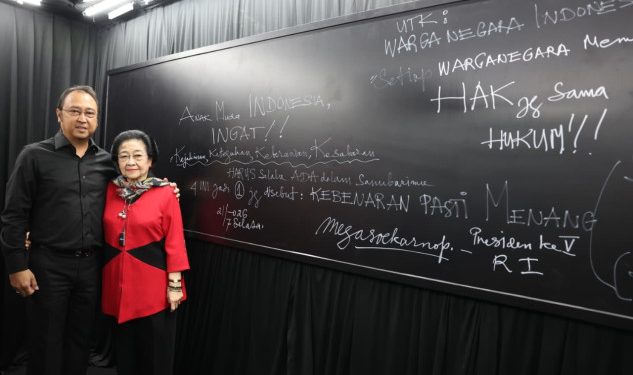 UTK:
WARGA NEGARA INDONES
"Setiap WARGANEGARA Mem
HAK yg sama
HUKUM!!!
ANAK Muda INDONESIA,
INGAT!!
Kejujuran, Keteguhan, Keberanian, Kesabaran
HARUS Selalu ADA dalam Sanubarimu
4 INI jadi 1 yg disebut: KEBENARAN PASTI MENANG
Megasoekarnop. – Presiden ke V
R I